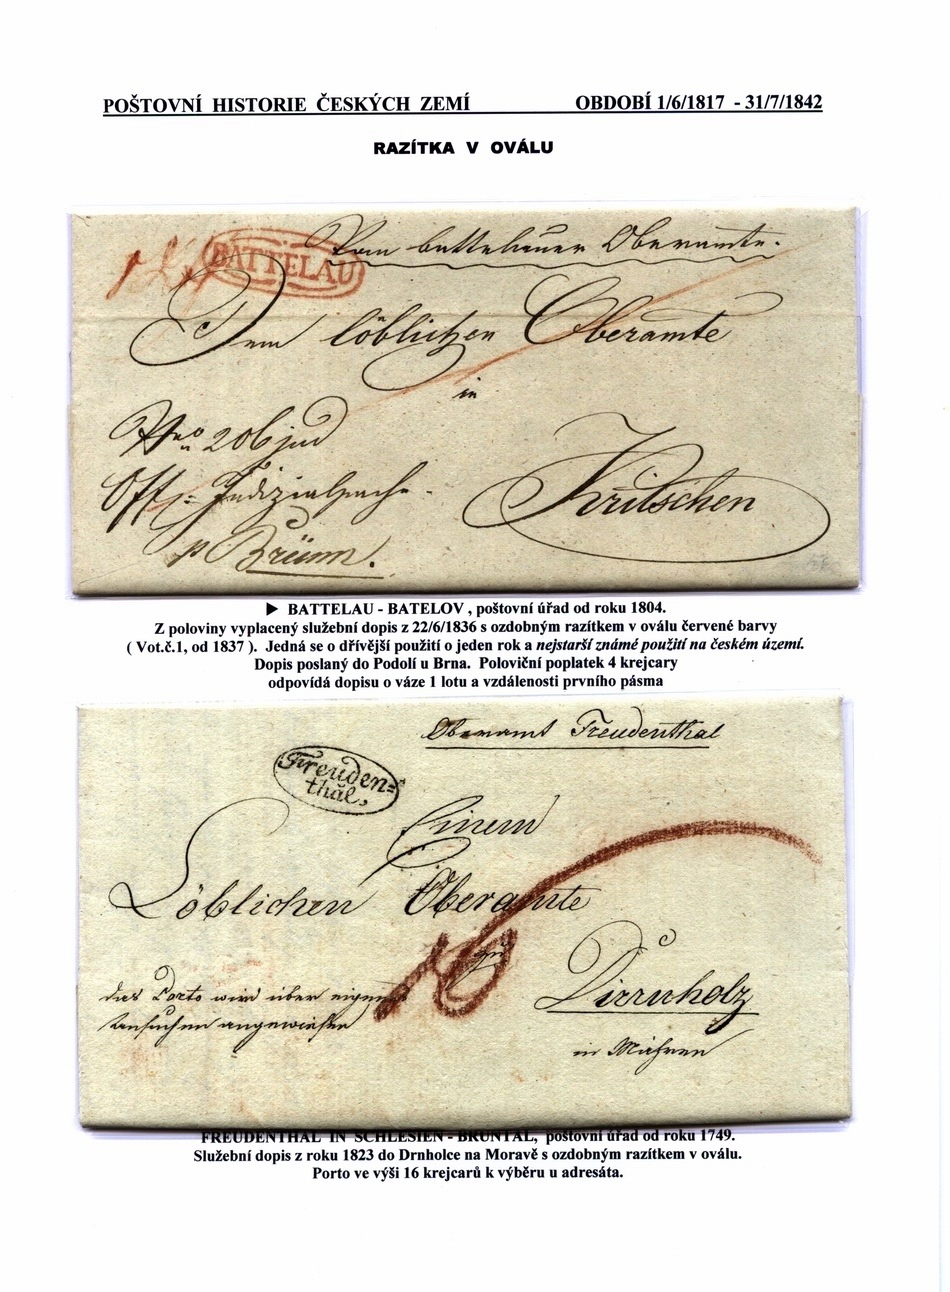 POŠTOVNÍ HISTORIE ČESKÝCH ZEMÍ OBDOBÍ 1/6/1817 - 31/7/1842
RAZÍTKA V OVÁLU
BATTELAU
Vom battelauer Oberamte.
Dem löblichen Oberamte
in
Kritschen
p Brünn.
► BATTELAU - BATELOV , poštovní úřad od roku 1804.
Z poloviny vyplacený služební dopis z 22/6/1836 s ozdobným razítkem v oválu červené barvy
( Vot.č.1, od 1837 ). Jedná se o dřívější použití o jeden rok a nejstarší známé použití na českém území.
Dopis poslaný do Podolí u Brna. Poloviční poplatek 4 krejcary
odpovídá dopisu o váze 1 lotu a vzdálenosti prvního pásma
Oberamt Freudenthal
Freuden=
thal.
Einem
Löblichen Oberamte
zu
16
Dirrnholz
das Porto wird über eigenes
Ansuchen angewiesen
in Mähren
FREUDENTHAL IN SCHLESIEN - BRUNTÁL, poštovní úřad od roku 1749.
Služební dopis z roku 1823 do Drnholce na Moravě s ozdobným razítkem v oválu.
Porto ve výši 16 krejcarů k výběru u adresáta.